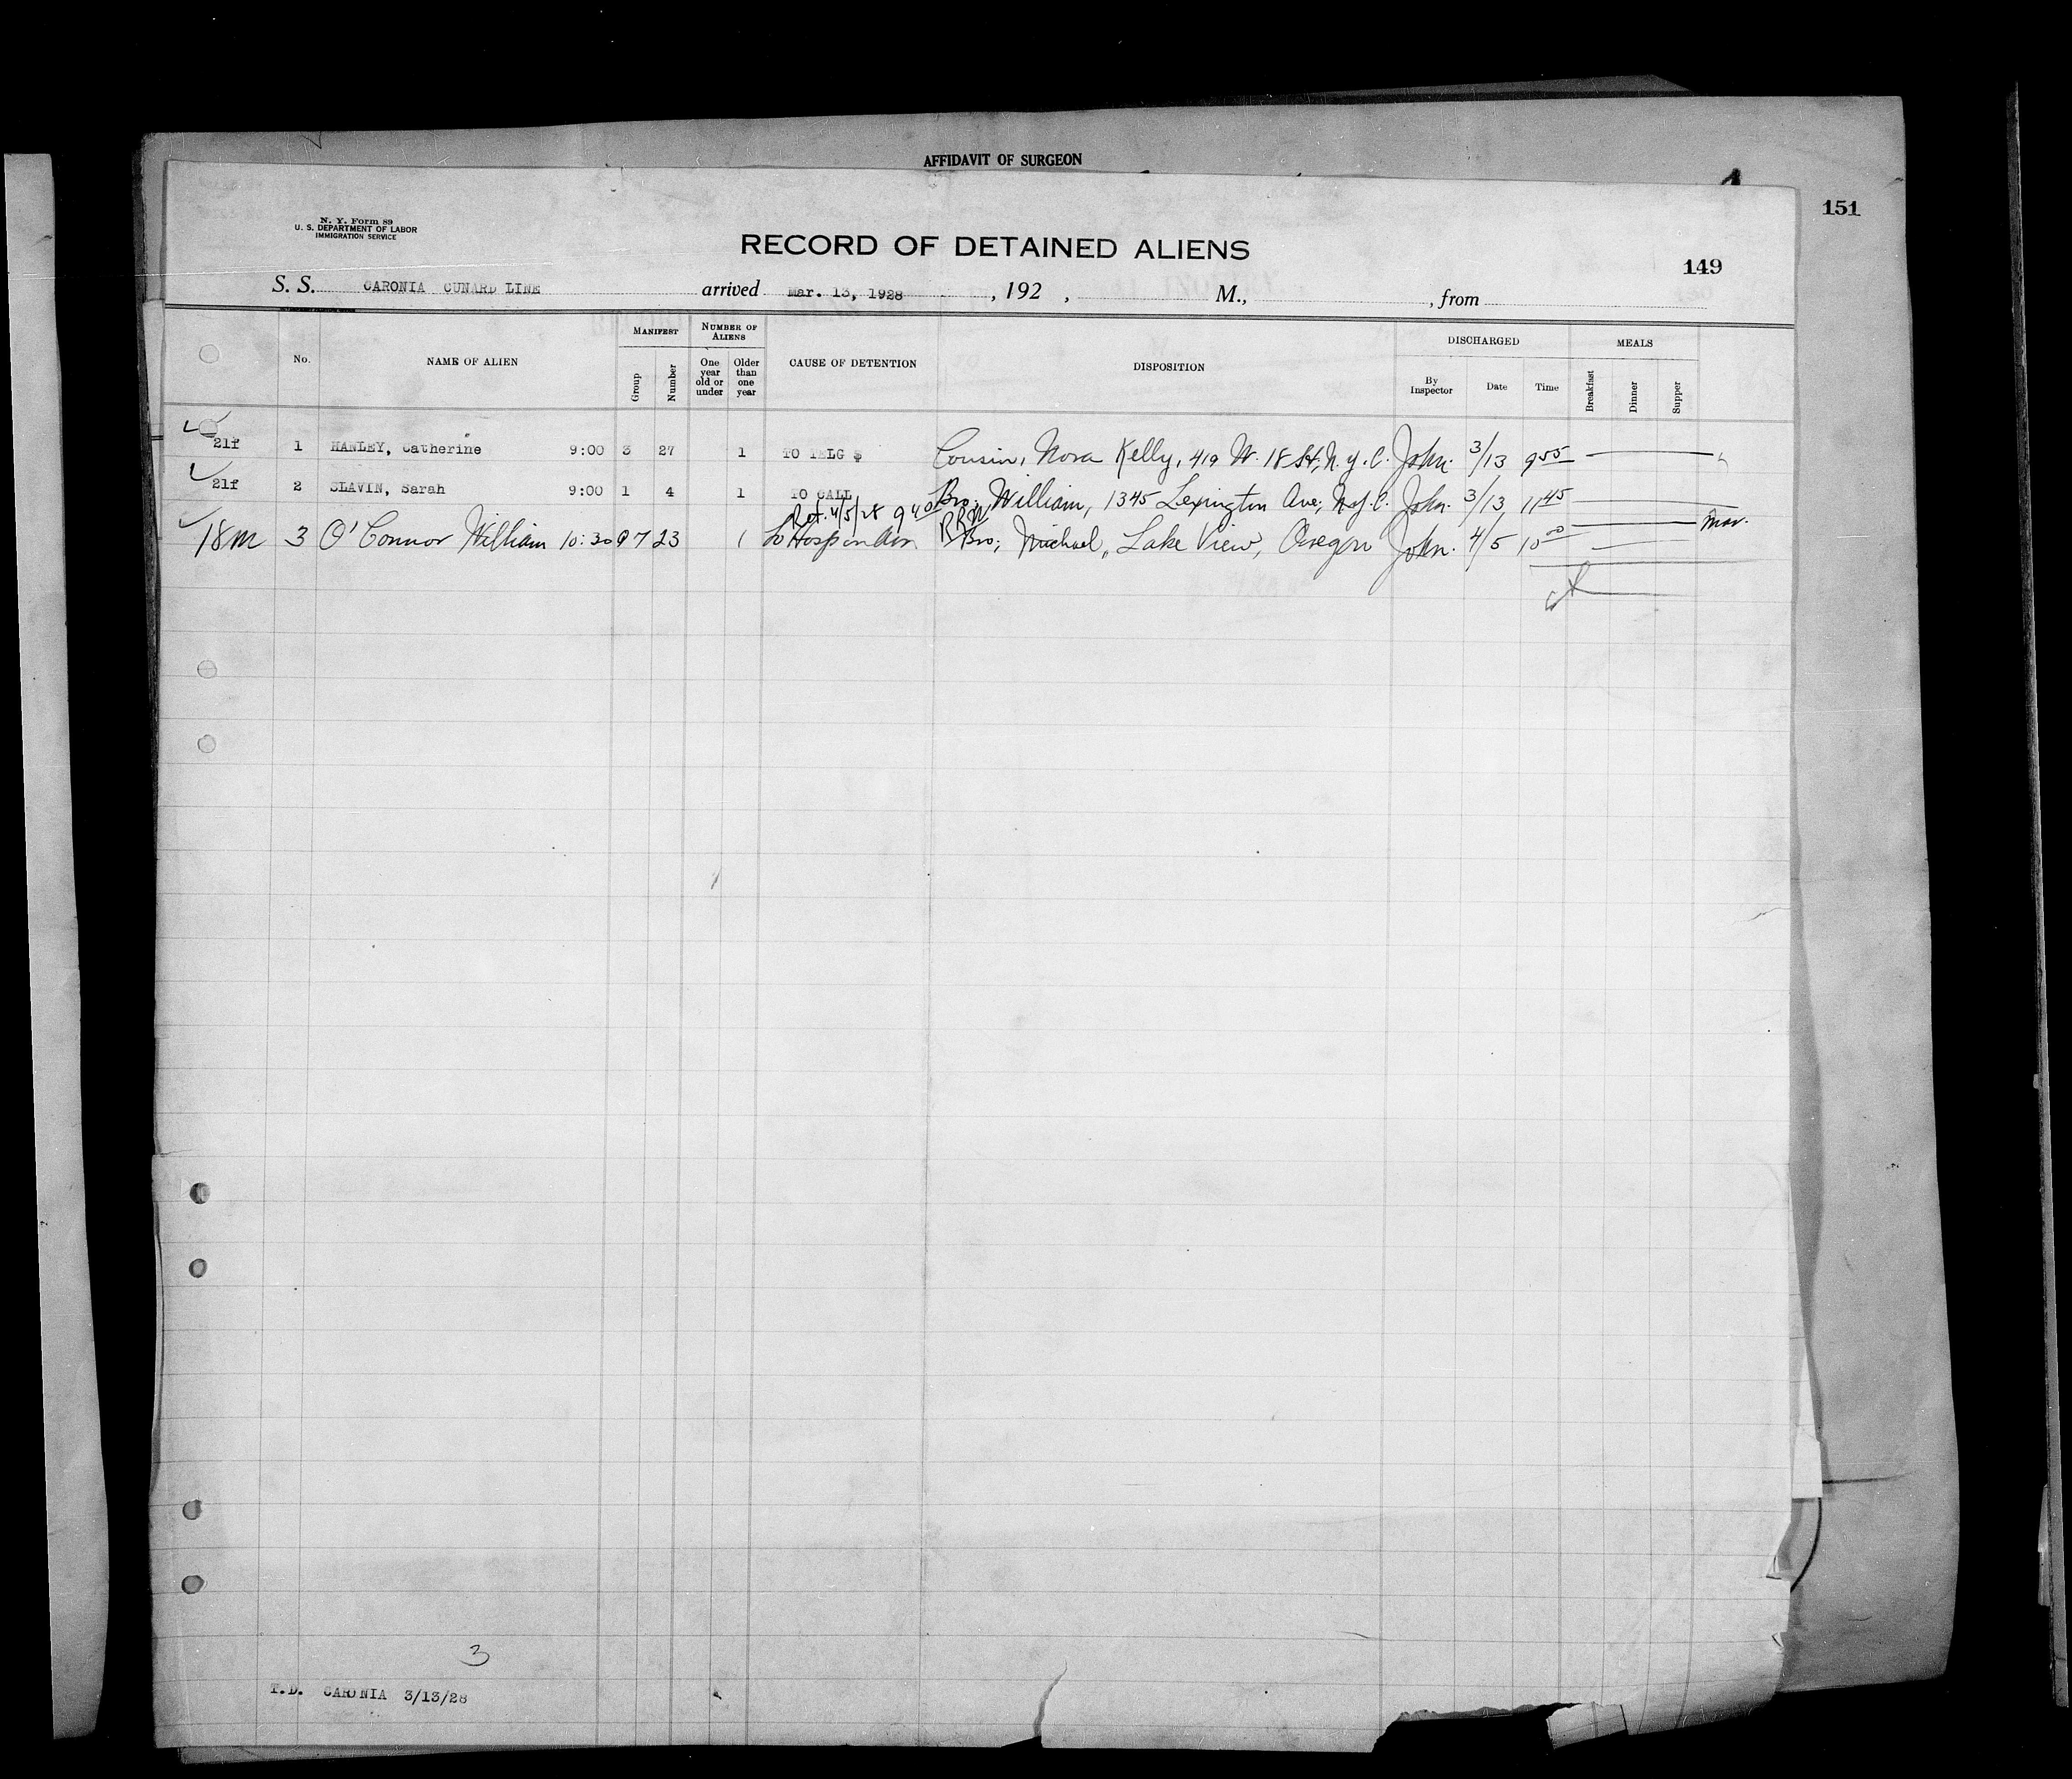 AFFIDAVIT OF SURGEON
151
N. Y. Form 89
U. S. DEPARTMENT OF LABOR
IMMIGRATION SERVICE
RECORD OF DETAINED ALIENS
149
S. S. CARONIA CUNARD LINE arrived Mar. 13, 1928, 192 , M., , from
No. NAME OF ALIEN MANIFEST Group Number NUMBER OF ALIENS One year old or under Older than one year CAUSE OF DETENTION DISPOSITION DISCHARGED By Inspector Date Time MEALS Breakfast Dinner Supper
21f 1 HANLEY, Catherine 9:00 3 27 1 TO TELG $ Cousin, Nora Kelly, 419 W. 18 St, N.Y.C. John. 3/13 9 55
21f 2 SLAVIN, Sarah 9:00 1 4 1 TO CALL Bro; William, 1345 Lexington Ave; N.Y.C. John. 3/13 11 45
4/5/28 9 40
18m 3 O'Connor William 10:30 7 23 1 To Hosp Bro; Michael, Lake View, Oregon John. 4/5 10 00 Mar.
3
T.D. CARONIA 3/13/28